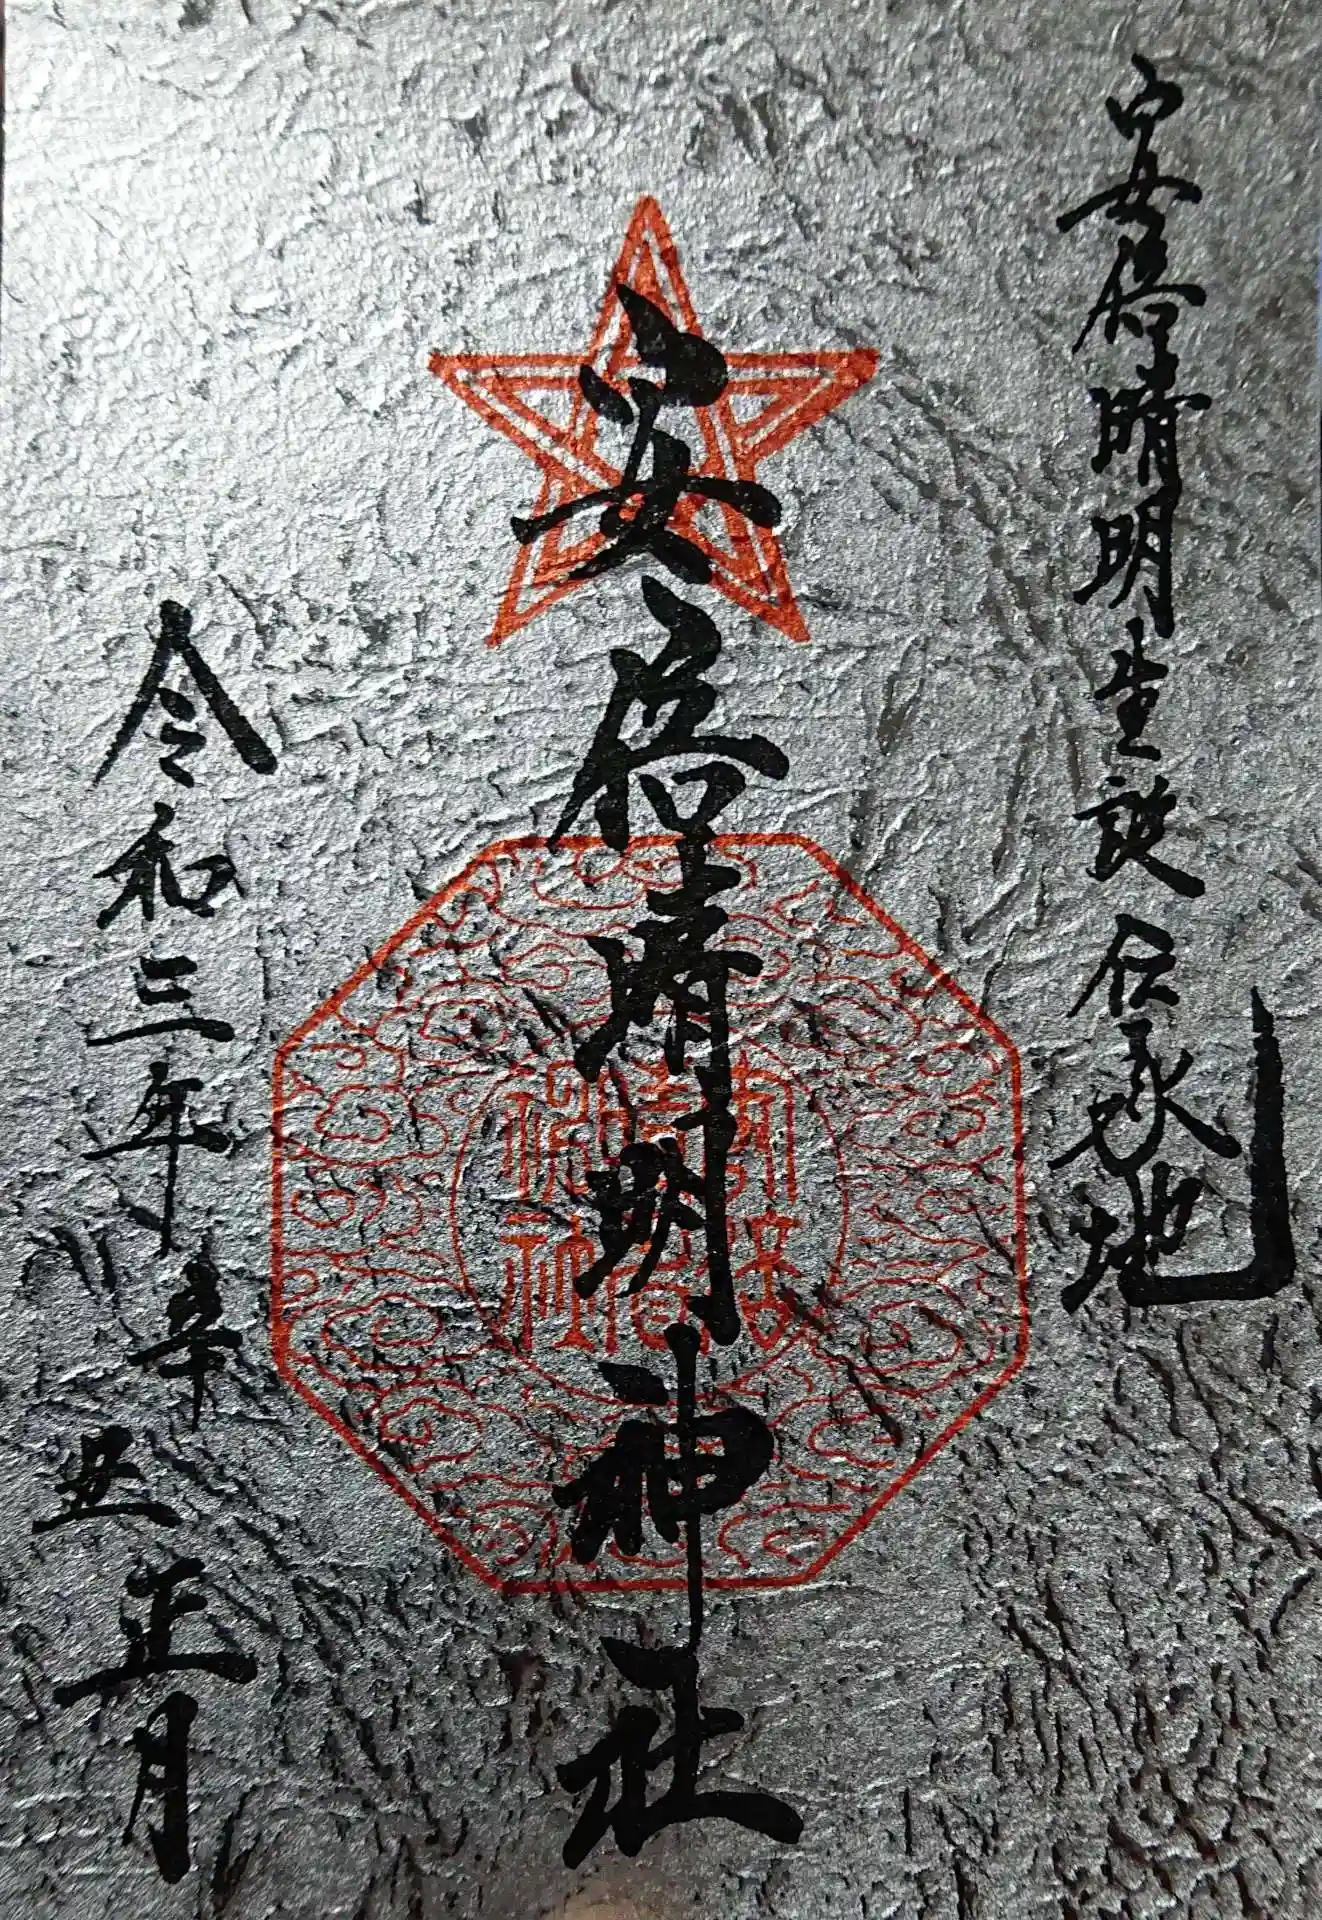 安倍晴明生誕伝承地
安倍晴明神社
令和三年辛丑正月